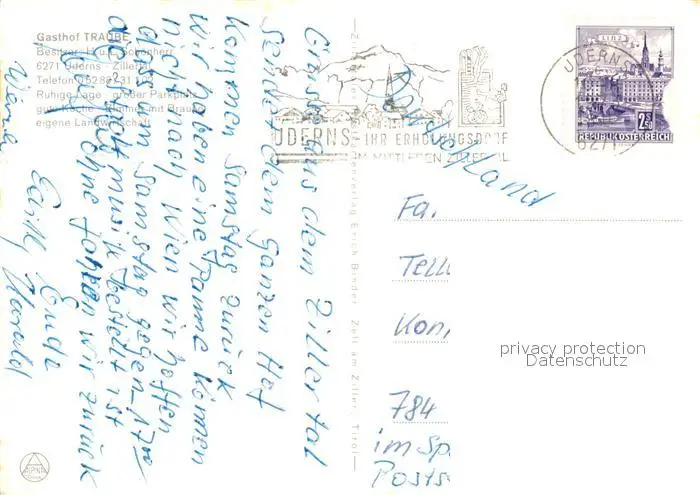 Gasthof TRAUBE
Besitzer: H. u. E. Schonherr
6271 Uderns - Zillertal
Telefon 05288/31
Ruhige Lage - großer Parkplatz
gute Küche - Zimmer mit Brause
eigene Landwirtschaft
Grüße aus dem Zillertal
sendet dem ganzen Hof
Kommen Samstag zurück
wir haben eine Panne kommen
nicht nach Wien wir hoffen
das am Samstag gegen 17 00
die Nachtmusik bestellt ist
ohne fahren wir zurück
Ende
Harald
Zillertaler Kartenverlag Erich Binder, Zell am Ziller, Tirol
UDERNS IHR ERHOLUNGSDORF
IM MITTLEREN ZILLERTAL
UDERNS
6271
LINZ
2.50
REPUBLIK ÖSTERREICH
Deutschland
Fa.
Tell
Kon
784
im Sp
Posts
privacy protection
Datenschutz
ALPINA